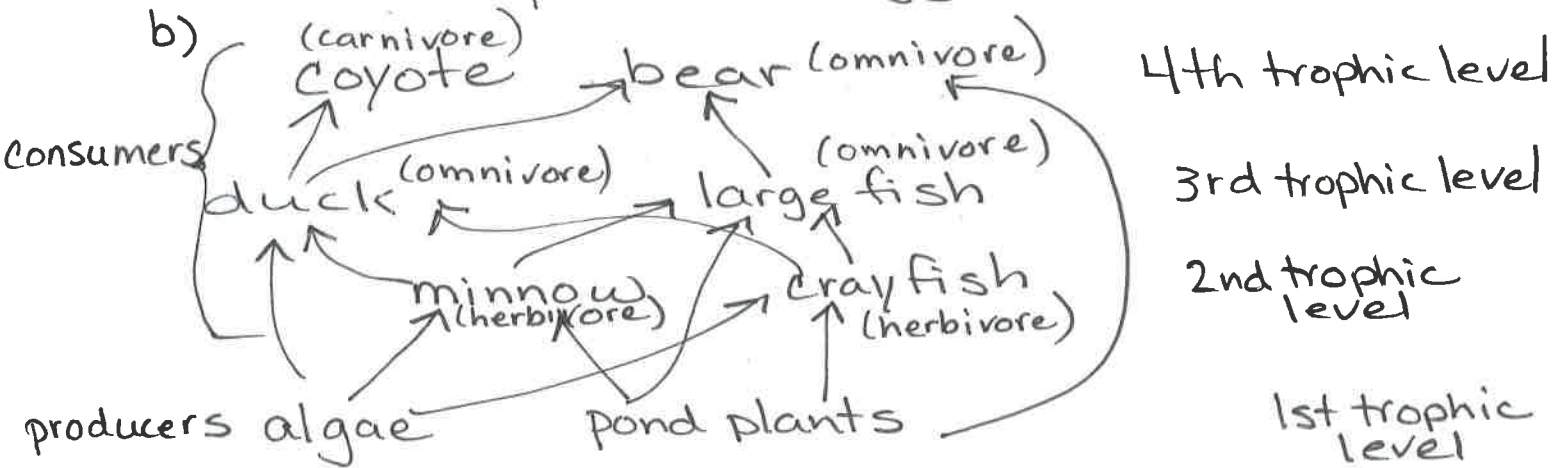 b)
(carnivore)
coyote
bear (omnivore)
4th trophic level
consumers
duck (omnivore)
(omnivore)
large fish
3rd trophic level
minnow
(herbivore)
crayfish
(herbivore)
2nd trophic
level
producers algae
pond plants
1st trophic
level